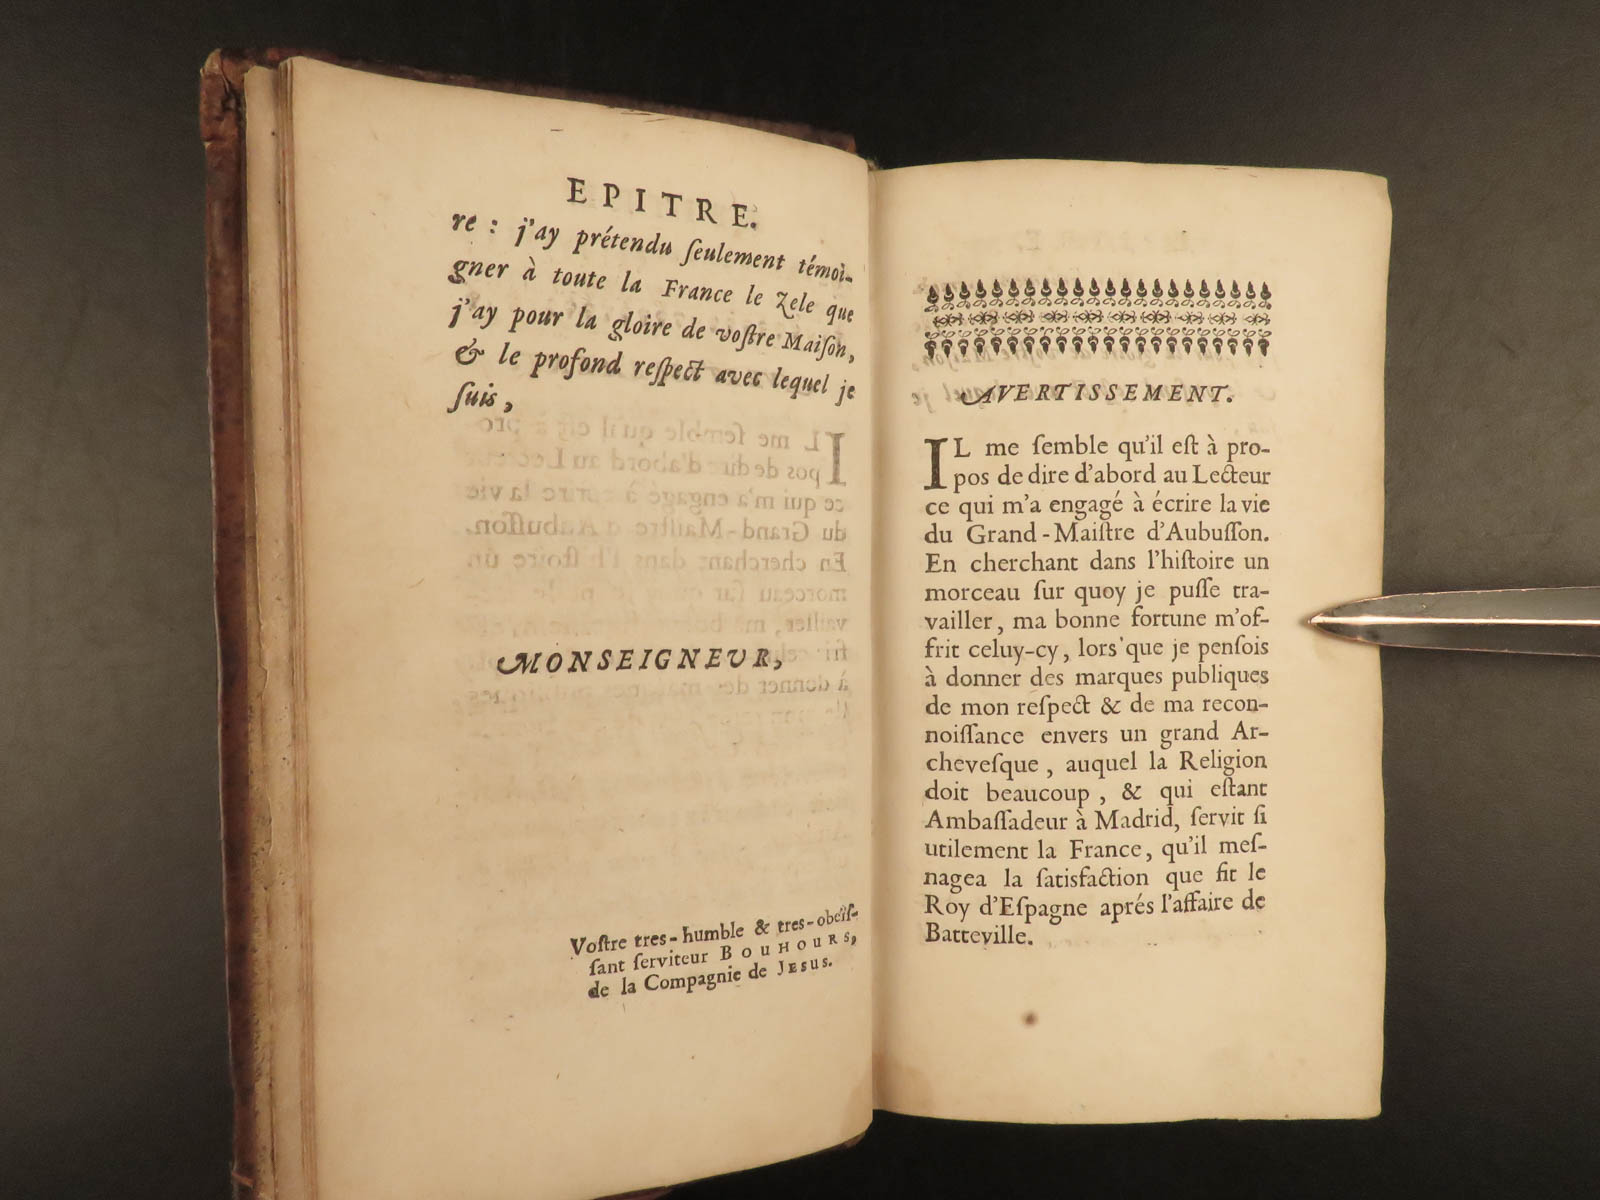 EPITRE.
re : j'ay prétendu ſeulement témoi-
gner à toute la France le Zele que
j'ay pour la gloire de voſtre Maiſon,
& le profond reſpect avec lequel je
ſuis,
MONSEIGNEUR,
Voſtre tres-humble & tres-obeïſ-
ſant ſerviteur BOUHOURS,
de la Compagnie de JESUS.
AVERTISSEMENT.
IL me ſemble qu'il eſt à pro-
pos de dire d'abord au Lecteur
ce qui m'a engagé à écrire la vie
du Grand-Maiſtre d'Aubuſſon.
En cherchant dans l'hiſtoire un
morceau ſur quoy je puſſe tra-
vailler, ma bonne fortune m'of-
frit celuy-cy, lors que je penſois
à donner des marques publiques
de mon reſpect & de ma recon-
noiſſance envers un grand Ar-
cheveſque, auquel la Religion
doit beaucoup, & qui eſtant
Ambaſſadeur à Madrid, ſervit ſi
utilement la France, qu'il meſ-
nagea la ſatisfaction que fit le
Roy d'Eſpagne aprés l'affaire de
Batteville.